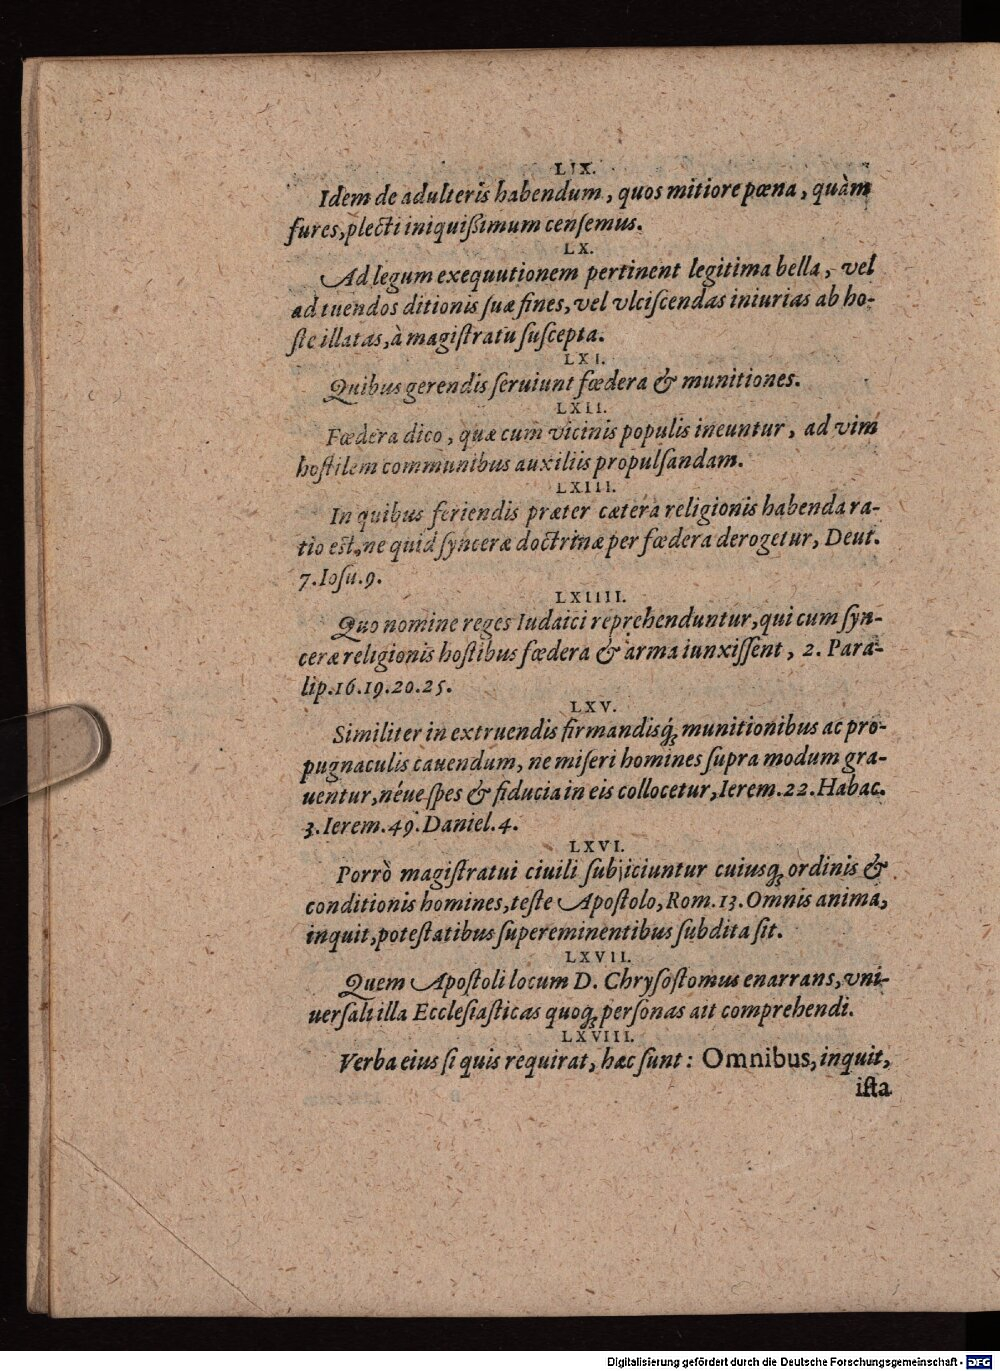 LIX.
Idem de adulteris habendum, quos mitiore pœna, quàm
fures, plecti iniquißimum censemus.
LX.
Ad legum exequutionem pertinent legitima bella, vel
ad tuendos ditionis suæ fines, vel vlciscendas iniurias ab ho-
ste illatas, à magistratu suscepta.
LXI.
Quibus gerendis seruiunt fœdera & munitiones.
LXII.
Fœdera dico, quæ cum vicinis populis ineuntur, ad vim
hostilem communibus auxiliis propulsandam.
LXIII.
In quibus feriendis præter cætera religionis habenda ra-
tio est, ne quid synceræ doctrinæ per fœdera derogetur, Deut.
7. Iosu. 9.
LXIIII.
Quo nomine reges Iudaici reprehenduntur, qui cum syn-
ceræ religionis hostibus fœdera & arma iunxissent, 2. Para-
lip. 16. 19. 20. 25.
LXV.
Similiter in extruendis firmandisq́; munitionibus ac pro-
pugnaculis cauendum, ne miseri homines supra modum gra-
uentur, néue spes & fiducia in eis collocetur, Ierem. 22. Habac.
3. Ierem. 49. Daniel. 4.
LXVI.
Porrò magistratui ciuili subijciuntur cuiusq; ordinis &
conditionis homines, teste Apostolo, Rom. 13. Omnis anima,
inquit, potestatibus supereminentibus subdita sit.
LXVII.
Quem Apostoli locum D. Chrysostomus enarrans, vni-
uersali illa Ecclesiasticas quoq; personas ait comprehendi.
LXVIII.
Verba eius si quis requirat, hæc sunt: Omnibus, inquit,
ista
Digitalisierung gefördert durch die Deutsche Forschungsgemeinschaft - DFG